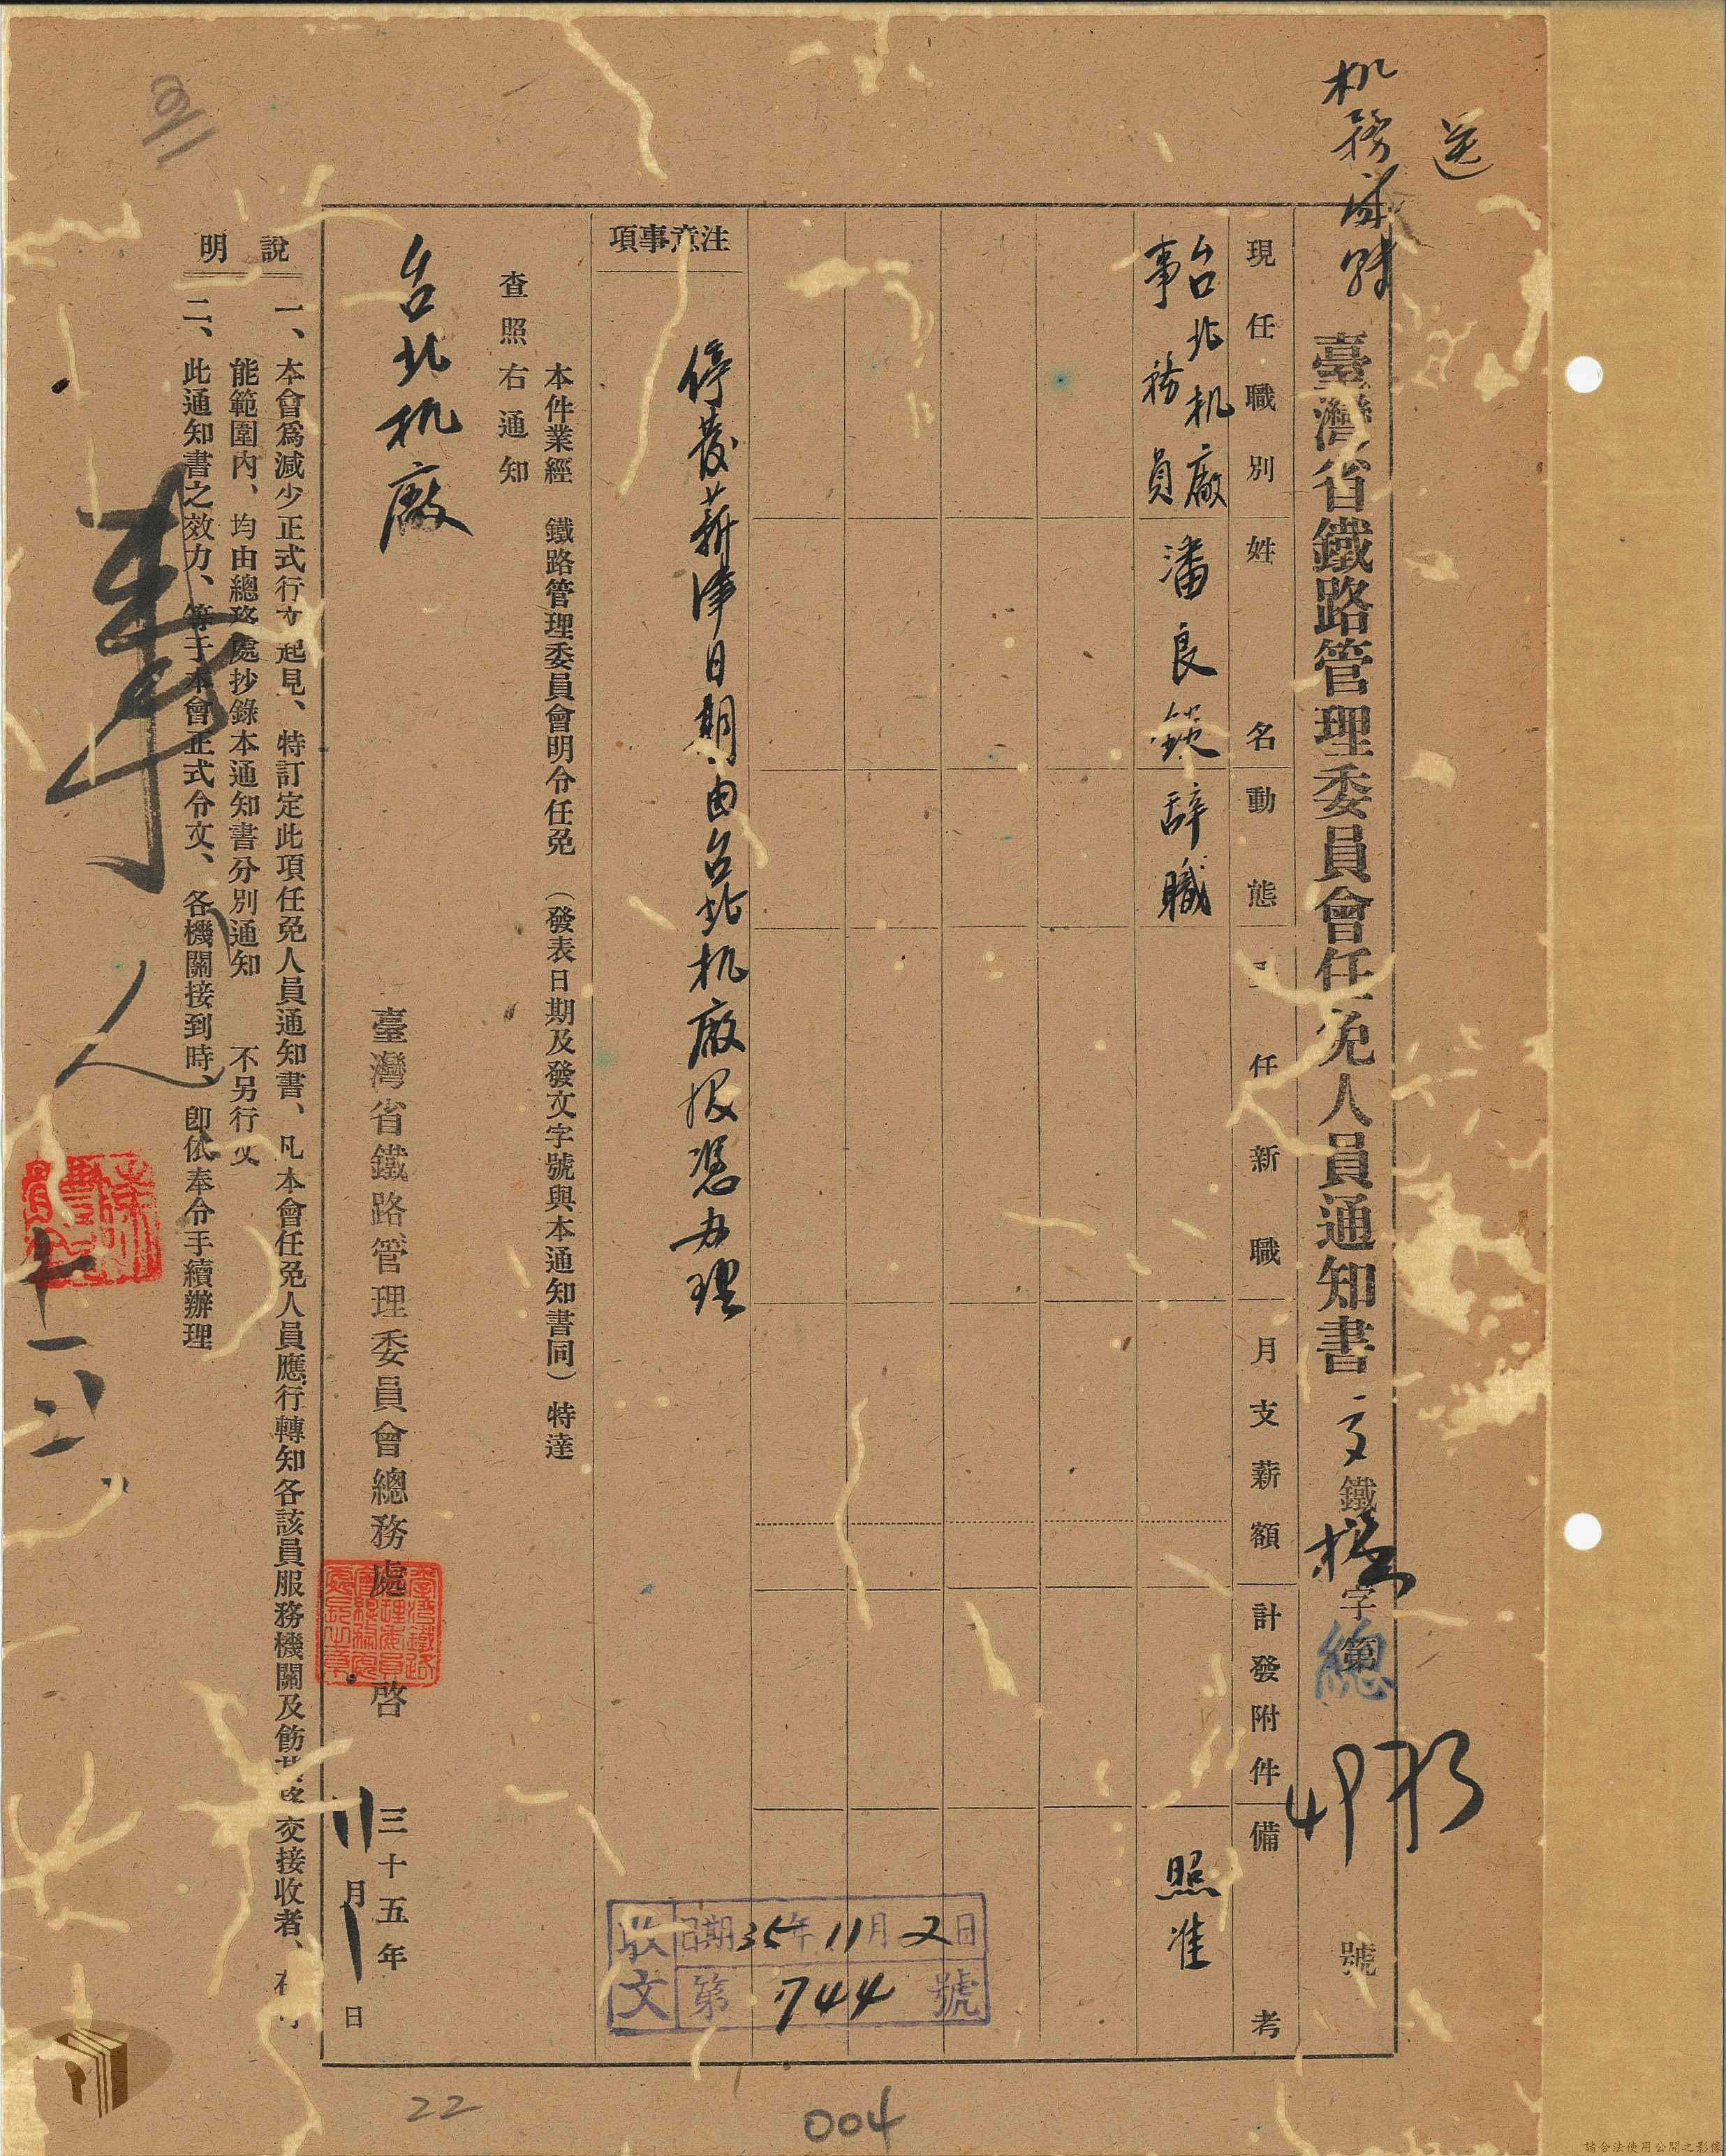 送
机務處
臺灣省鐵路管理委員會任免人員通知書
鐵
字第
總
號
現任職別
姓名
動態
任新職
月支薪額
計發附件
備考
台北机廠
事務員
潘良錟
辭職
照准
注意事項
停發薪津日期由台北机廠報憑办理
本件業經 鐵路管理委員會明令任免 (發表日期及發文字號與本通知書同) 特達
查照右通知
台北机廠
臺灣省鐵路管理委員會總務處 啓
三十五年
11月1日
說明
一、本會爲減少正式行文起見、特訂定此項任免人員通知書、凡本會任免人員應行轉知各該員服務機關及飭 交接收者、在
能範圍內、均由總務處抄錄本通知書分別通知 不另行文
二、此通知書之效力、等于本會正式令文、各機關接到時、卽依奉令手續辦理
人
收文
日期35年11月2日
第744號
22
004
請合法使用公開之影像